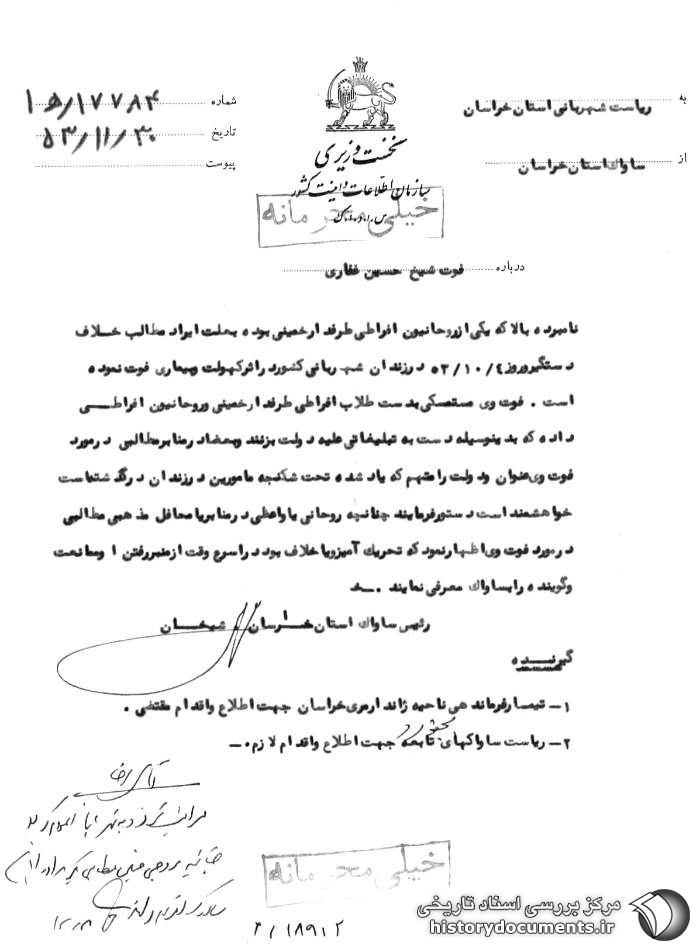 به ریاست شهربانی استان خراسان
از ساواک استان خراسان
نخست وزیری
سازمان اطلاعات و امنیت کشور
س.ا.و.ا.ک
شماره ۱۵/۱۷۷۸۴
تاریخ ۵۳/۱۱/۳۰
پیوست
خیلی محرمانه
درباره فوت شیخ حسین غفاری
نامبرده بالا که یکی از روحانیون افراطی طرفدار خمینی بوده بعلت ایراد مطالب خلاف
دستگیر و روز ۵۳/۱۰/٤ در زندان شهربانی کشور در اثر کهولت و بیماری فوت نموده
است . فوت وی مستمسکی بدست طلاب افراطی طرفدار خمینی و روحانیون افراطی
داده که بدینوسیله دست به تبلیغاتی علیه دولت بزنند و بعضا در منابر مطالبی در مورد
فوت وی عنوان و دولت را متهم که یاد شده تحت شکنجه مامورین در زندان درگذشته است
خواهشمند است دستور فرمایند چنانچه روحانی یا واعظی در منابر یا محافل مذهبی مطالبی
در مورد فوت وی اظهار نمود که تحریک آمیز و یا خلاف بود در اسرع وقت از منبر رفتن او ممانعت
و گوینده را بساواک معرفی نمایند .ـ خ
رئیس ساواک استان خراسان . شیخان
گیرنده
۱ـ تیمسار فرماندهی ناحیه ژاندارمری خراسان جهت اطلاع و اقدام مقتضی .
۲ـ ریاست ساواکهای تابعه جهت اطلاع و اقدام لازم .ـ
خیلی محرمانه
۲/۱۸۹۱۲
مرکز بررسی اسناد تاریخی
historydocuments.ir